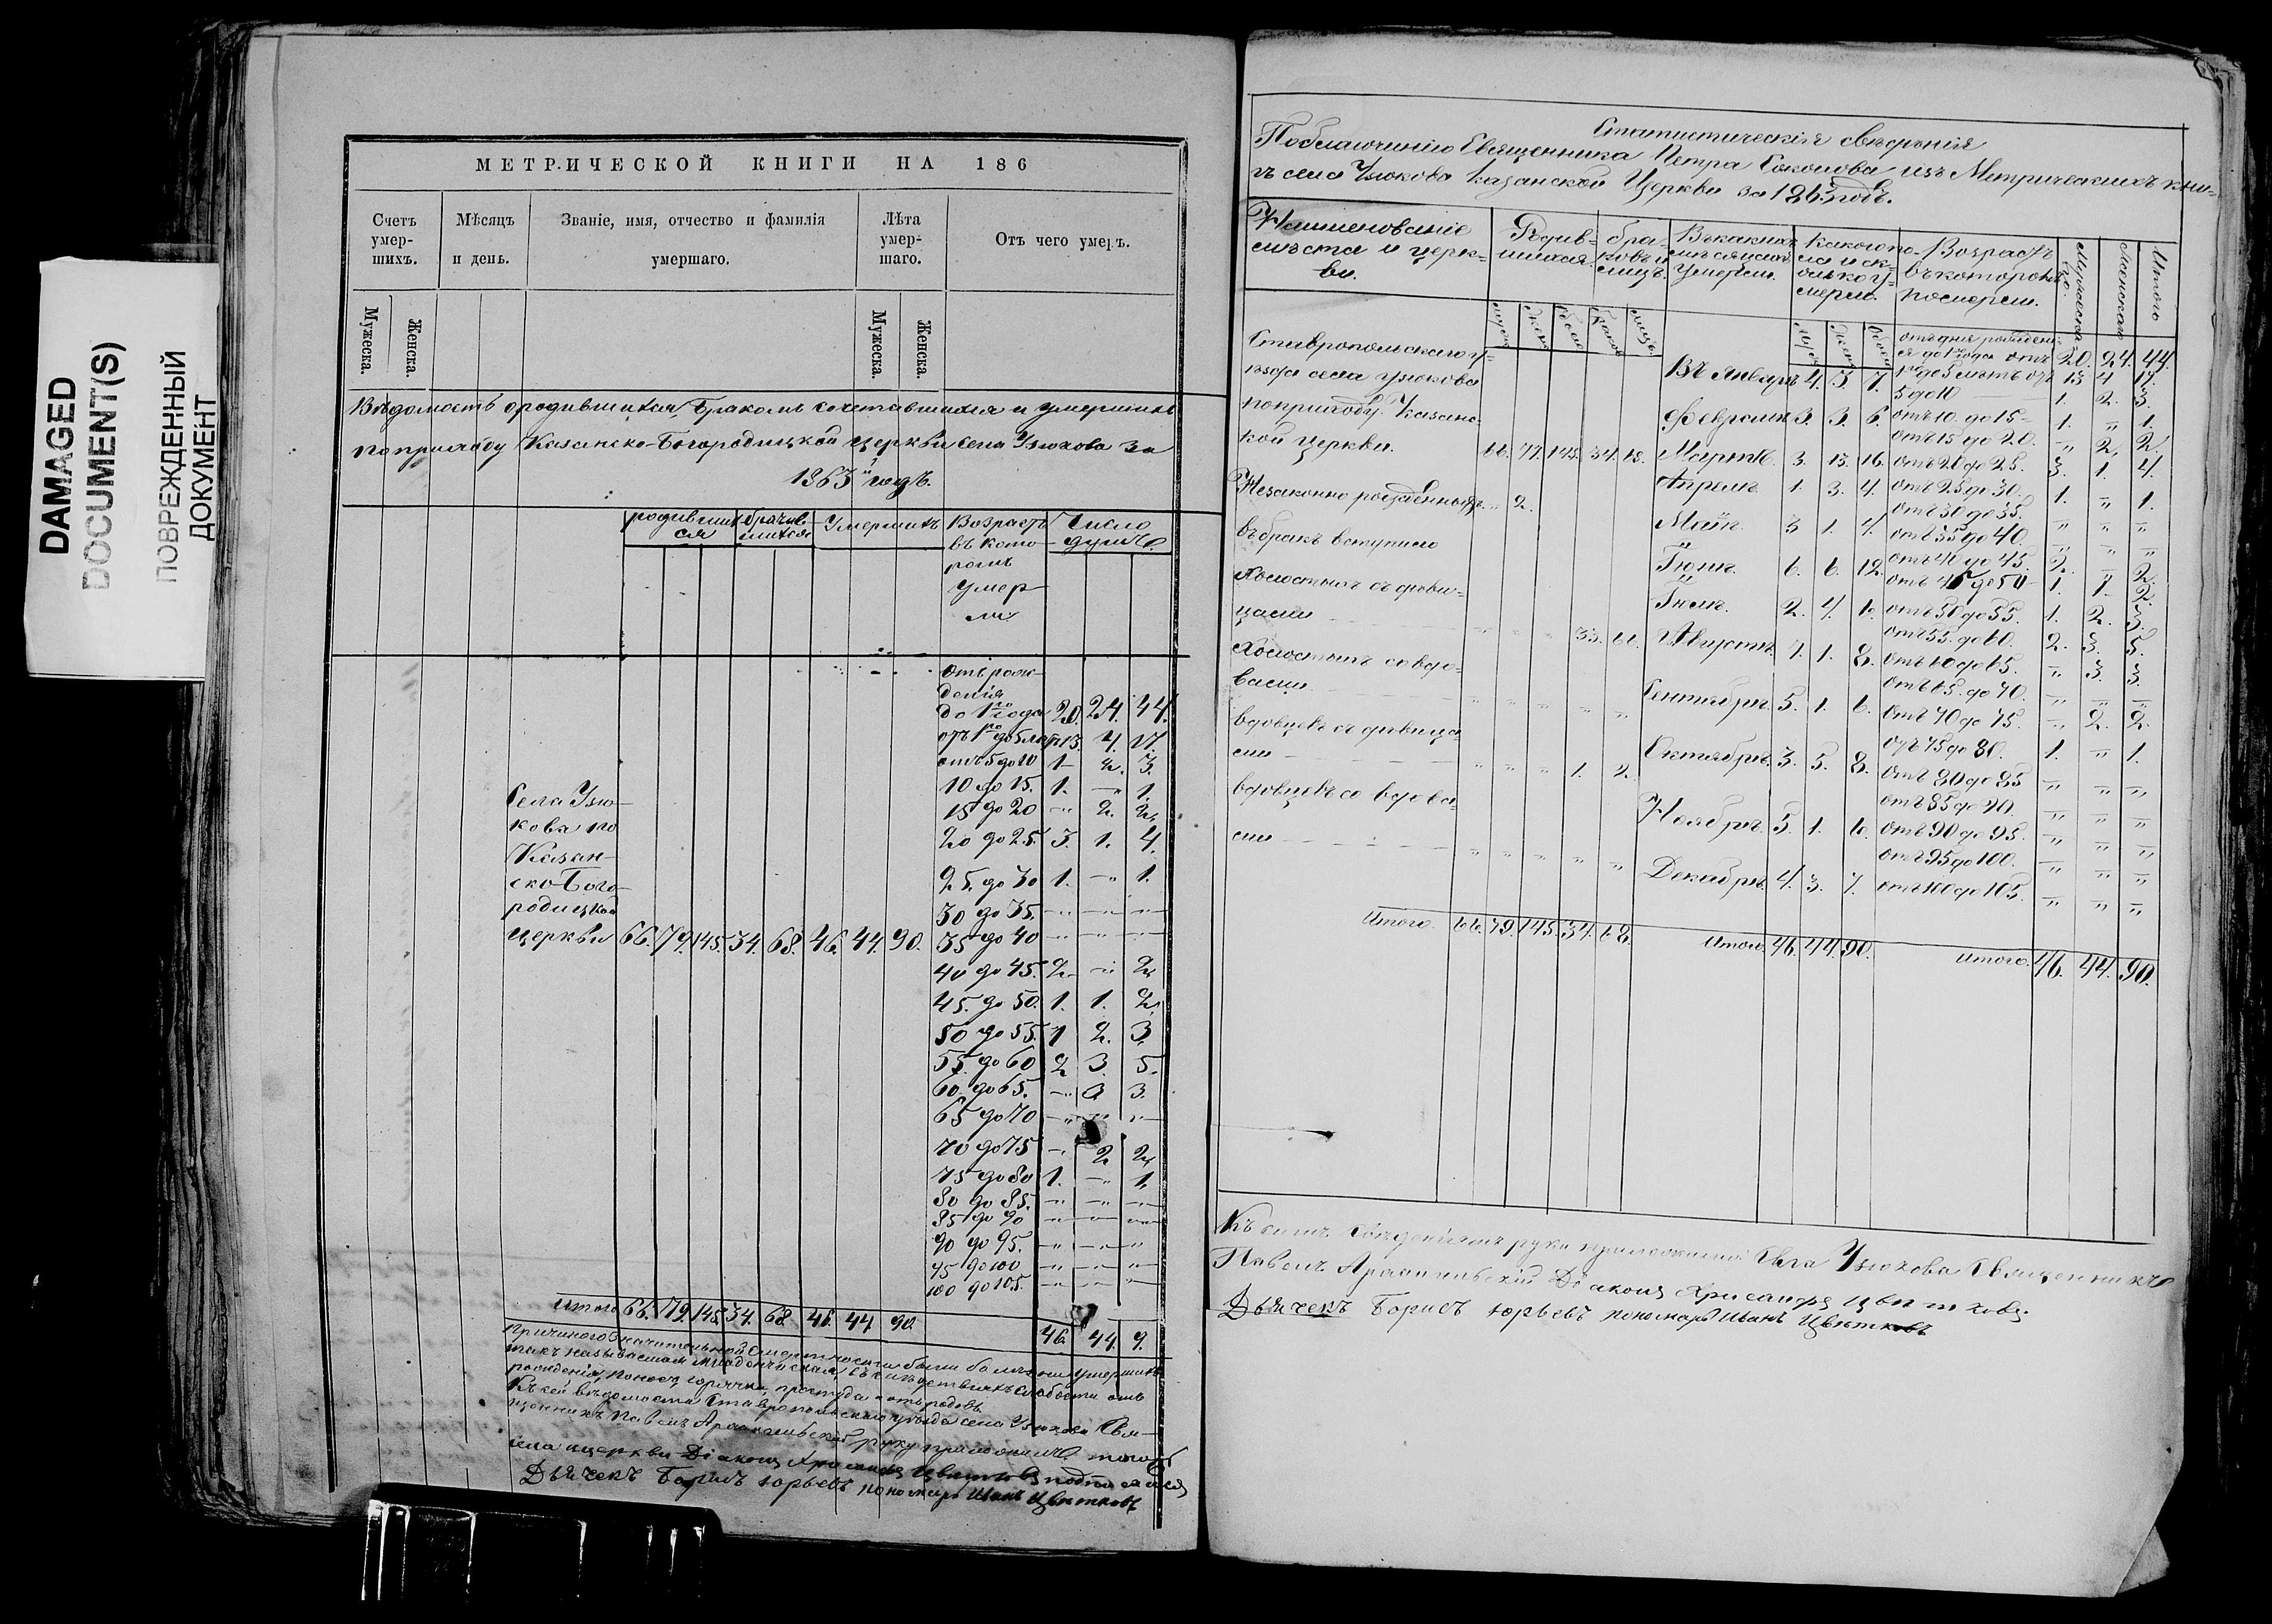 DAMAGED
DOCUMENT(S)
ПОВРЕЖДЕННЫЙ
ДОКУМЕНТ
МЕТРИЧЕСКОЙ КНИГИ НА 186
Счетъ умер-шихъ. Мѣсяцъ и день. Званіе, имя, отчество и фамилія умершаго. Лѣта умер-шаго. Отъ чего умеръ.
Мужеска. Женска. Мужеска. Женска.
Вѣдомость о родившихся, бракомъ сочетавшихся и умершихъ
по приходу Казанско-Богородицкой церкви села Узюкова за
1863й годъ.
родивших-ся брачив-шихся Умершихъ Возрастъ въ кото-ромъ умер-ли Число душъ.
Отъ рож-
денія
до 1го года 20. 24. 44.
отъ 1го до 5 лѣтъ 13. 4. 17.
отъ 5 до 10 1 2. 3.
10 до 15. 1. — 1.
Села Узю- 15 до 20 — 2. 2.
кова по 20 до 25. 3. 1. 4.
Казан-
ско-Бого- 25. до 30 1. — 1.
родицкой 30 до 35. — — —
церкви 66. 79. 145. 34. 68. 46. 44. 90. 35 до 40 — — —
40 до 45. 2. — 2.
45. до 50. 1. 1. 2.
50 до 55. 1 2. 3.
55. до 60 2 3. 5.
60. до 65. — 3 3.
65 до 70 — — —
70 до 75 — 2 2.
75 до 80 1. — 1.
80 до 85. — — —
85 до 90 — — —
90 до 95. — — —
95 до 100 — — —
100 до 105. — — —
Итого 66. 79. 145. 34. 68 46. 44 90. 46. 44. 9.
Причиною значительной смертности были болѣзни умершихъ
такъ называемая младенческая, въ слѣдствіяхъ слабости отъ
рожденія, поносъ, горячка, простуда и отъ родовъ.
Къ сей вѣдомости Ставропольскаго уѣзда села Узюкова Свя-
щенникъ Павелъ руку приложилъ. тогожъ
села церкви Діаконъ Хрисанфъ Цвѣтковъ подписался
Дьячекъ Борисъ Юрьевъ пономарь Иванъ Цвѣтковъ
Статистическія свѣденія
По благочинію Священника Петра Соколова изъ Метрическихъ кни-
гъ села Узюкова Казанской Церкви за 1863 годъ.
Наименованіе мѣста и церк-ви. Родив-шихся. бра-ковъ и лицъ. Въ какихъ мѣсяцахъ умерли. Какого по-ла и ск-олько у-мерло. Возрастъ въ которомъ померли. Мужеска-го. Женскаго Итого
Ставропольскаго у- отъ дня рожденi-
ѣзда села Узюкова я до 1го года 20. 24. 44.
по приходу Казанс- Въ Январѣ 4. 3. 7. 1го до 5 лѣтъ 13 4 17.
5 до 10 1. 2. 3.
Февралѣ 3. 3. 6. отъ 10. до 15 1. „ 1.
отъ 15 до 20. „ 2, 2.
кой церкви. 66. 77. 145. 34. 68. Мартѣ. 3. 13. 16. отъ 20 до 25. 3. 1. 4.
Апрѣлѣ. 1. 3. 4. отъ 25 до 30. 1. „ 1.
Незаконно рожденныхъ „ 2. отъ 30 до 35. „ „ „
Маѣ. 3 1. 4. отъ 35 до 40. „ „ „
въ бракъ вступило Іюнѣ. 6. 6. 12. отъ 40 до 45. 2. — 2.
отъ 45 до 50 1. 1. 2.
Холостыхъ съ дѣви- Іюлѣ. 2. 4. 6. отъ 50 до 55. 1. 2. 3.
отъ 55. до 60. 2. 3. 5.
цами „ „ „ 33. 66. Августѣ. 7. 1. 8. отъ 60 до 65. „ 3. 3.
Холостыхъ со вдо- отъ 65. до 70. „ „ „
вами „ „ „ „ „ Сентябрѣ. 5. 1. 6. отъ 70 до 75. „ 2. 2.
вдовцевъ съ дѣвица- отъ 75 до 80. 1. „ 1.
ми „ „ „ 1. 2. Октябрѣ. 3. 5. 8. отъ 80 до 85 „ „ „
отъ 85 до 90. „ „ „
вдовцевъ со вдова- Ноябрѣ. 5. 1. 6. отъ 90 до 95. „ „ „
отъ 95 до 100. „ „ „
ми „ „ „ „ „ Декабрѣ. 4. 3. 7. отъ 100 до 105. „ „ „
Итого. 66. 79. 145. 34. 68. Итого. 46. 44. 90. Итого. 46. 44. 90.
Къ симъ свѣденіямъ руки приложили: Села Узюкова Священникъ
Павелъ Діаконъ Хрисанфъ Цвѣтковъ
Дьячекъ Борисъ Юрьевъ пономарь Иванъ Цвѣтковъ